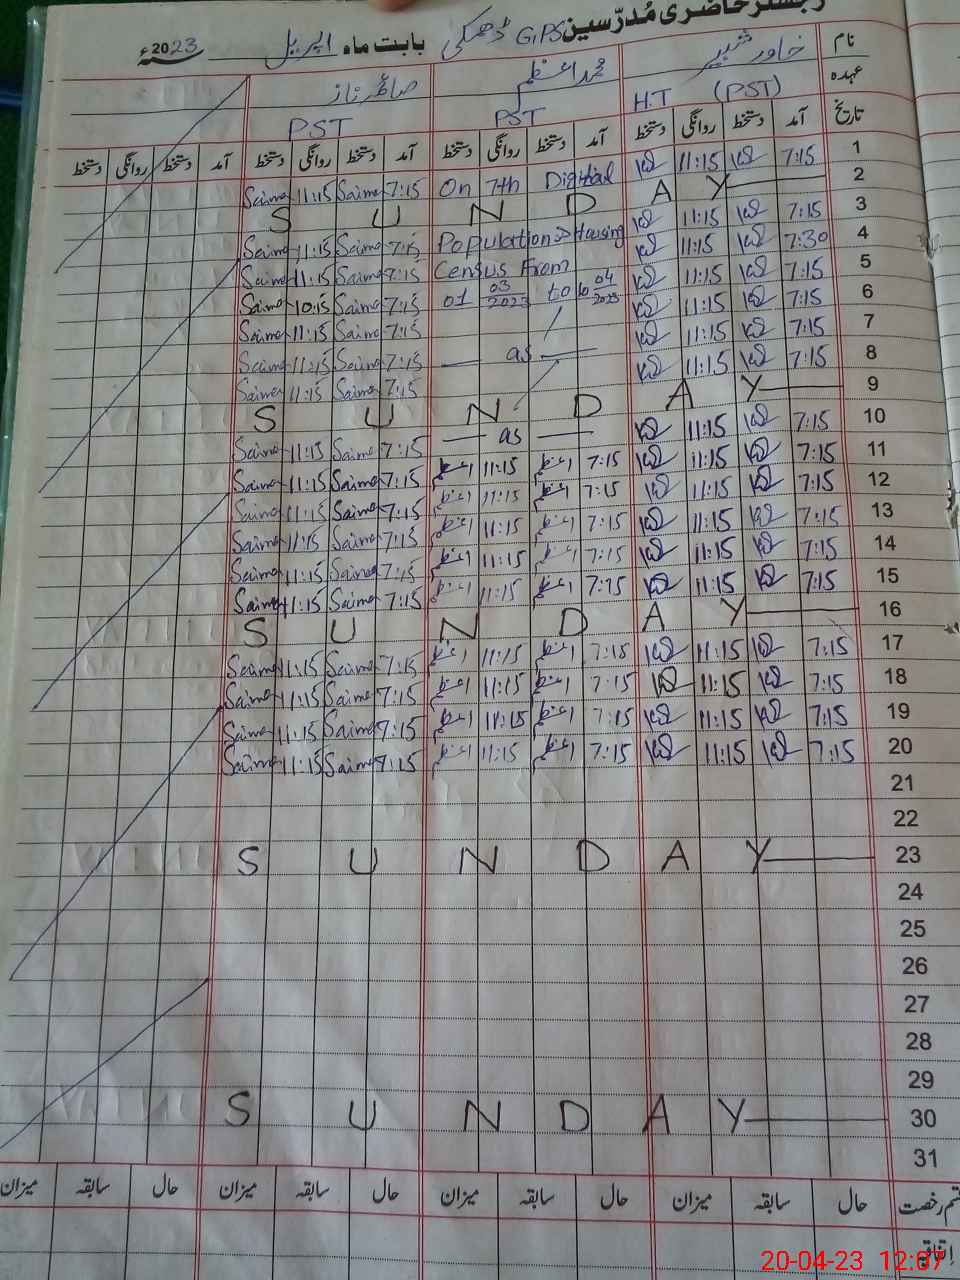 رجسٹر حاضری مُدرّسین GPS ڈھمکی بابت ماہ اپریل 2023ء
نام خاور شبیر محمد اعظم صائمہ ناز
عہدہ H.T (PST) PST P.S.T
تاریخ آمد دستخط روانگی دستخط آمد دستخط روانگی دستخط آمد دستخط روانگی دستخط آمد دستخط روانگی دستخط
1 7:15 11:15 On 7th Digital 7:15 Saima 11:15 Saima
2 S U N D A Y
3 7:15 11:15 Population & Housing 7:15 Saima 11:15 Saima
4 7:30 11:15 Census From 7:15 Saima 11:15 Saima
5 7:15 11:15 01 03/2023 to 10 04/2023 7:15 Saima 10:15 Saima
6 7:15 11:15 7:15 Saima 11:15 Saima
7 7:15 11:15 as 7:15 Saima 11:15 Saima
8 7:15 11:15 7:15 Saima 11:15 Saima
9 S U N D A Y
10 7:15 11:15 as 7:15 Saima 11:15 Saima
11 7:15 11:15 7:15 اعظم 11:15 اعظم 7:15 Saima 11:15 Saima
12 7:15 11:15 7:15 اعظم 11:15 اعظم 7:15 Saima 11:15 Saima
13 7:15 11:15 7:15 اعظم 11:15 اعظم 7:15 Saima 11:15 Saima
14 7:15 11:15 7:15 اعظم 11:15 اعظم 7:15 Saima 11:15 Saima
15 7:15 11:15 7:15 اعظم 11:15 اعظم 7:15 Saima 11:15 Saima
16 S U N D A Y
17 7:15 11:15 7:15 اعظم 11:15 اعظم 7:15 Saima 11:15 Saima
18 7:15 11:15 7:15 اعظم 11:15 اعظم 7:15 Saima 11:15 Saima
19 7:15 11:15 7:15 اعظم 11:15 اعظم 7:15 Saima 11:15 Saima
20 7:15 11:15 7:15 اعظم 11:15 اعظم 7:15 Saima 11:15 Saima
21
22
23 S U N D A Y
24
25
26
27
28
29
30 S U N D A Y
31
قسم رخصت حال سابقہ میزان حال سابقہ میزان حال سابقہ میزان حال سابقہ میزان
اتفاقیہ
20-04-23 12:07